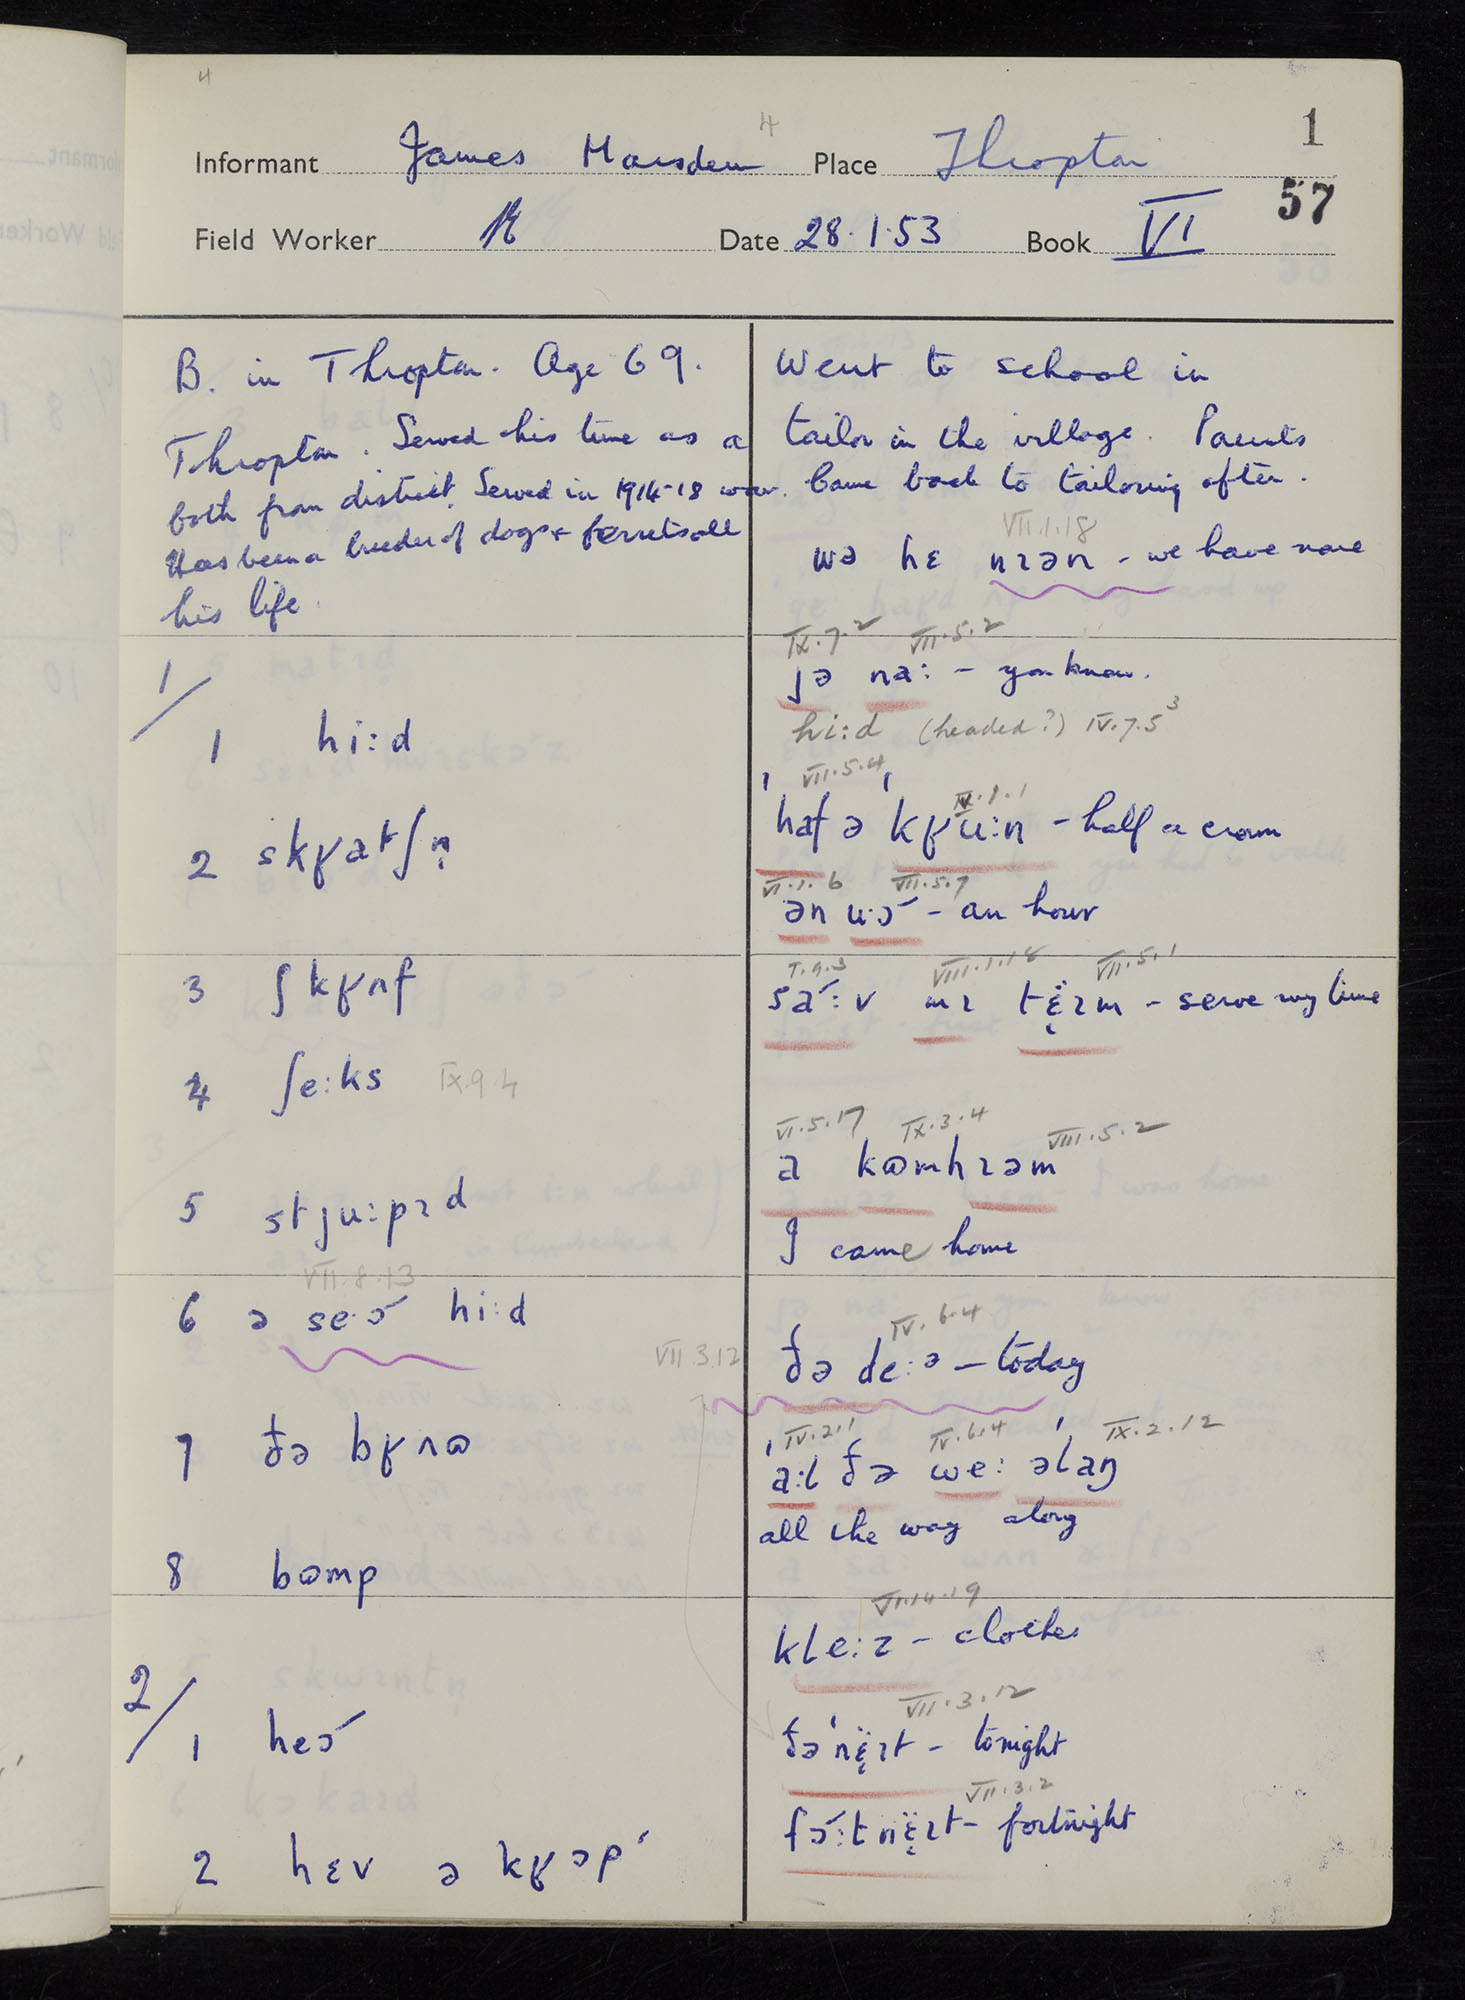 4
1
Informant James Marsden 4 Place Thropton
57
Field Worker Date 28.1.53 Book VI
B. in Thropton. Age 69. Went to school in
Thropton. Served his time as a tailor in the village. Parents
both from district. Served in 1914-18 war. Came back to tailoring after.
Has been a breeder of dogs + ferrets all
his life.
VII.1.18
wə hɛ nɪən - we have none
IX.7.2 VII.5.2
jə na: - you know.
hi:d (headed?) IV.7.5³
VII.5.4
ˈhaf ə ˈkʁu:n - half a crown
VI.1.6 VII.5.7
ən u·ɔ́ - an hour
1/
1 hi:d
2 skʁatʃn̩
3 ʃkʁʌf
4 ʃe:ks IX.9.4
5 stju:pɪd
VIII.1.18 VII.5.1
sá:v mɪ tɛ̈ɪm - serve my time
VI.5.17 IX.3.4 VIII.5.2
a kɷmhɪəm
I came home
VII.8.13
6 ə se·ɔ́ hi:d
7 ðə bʁʌɷ
8 bɷmp
IV.6.4
VII.3.12 ðə de:ᵊ - today
IV.2.1 IV.6.4 IX.2.12
ˈa:l ðə we: əˈlaŋ
all the way along
VI.14.19
kle:z - clothes
2/
1 heɔ́
2 hɛv ə kʁɔp
VII.3.12
ðəˈnɛ̈ɪt - tonight
VII.3.2
fɔ́:tnɛ̈ɪt - fortnight